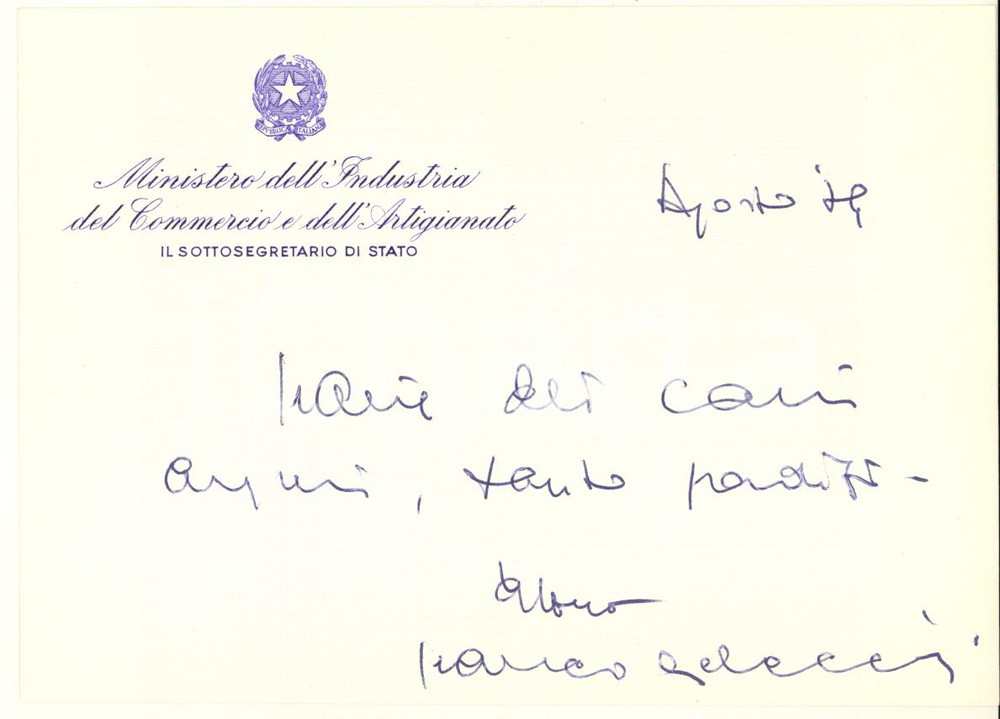 REPUBBLICA ITALIANA
Ministero dell'Industria
del Commercio e dell'Artigianato
IL SOTTOSEGRETARIO DI STATO
Agosto '74
Grazie dei cari
auguri, tanto graditi -